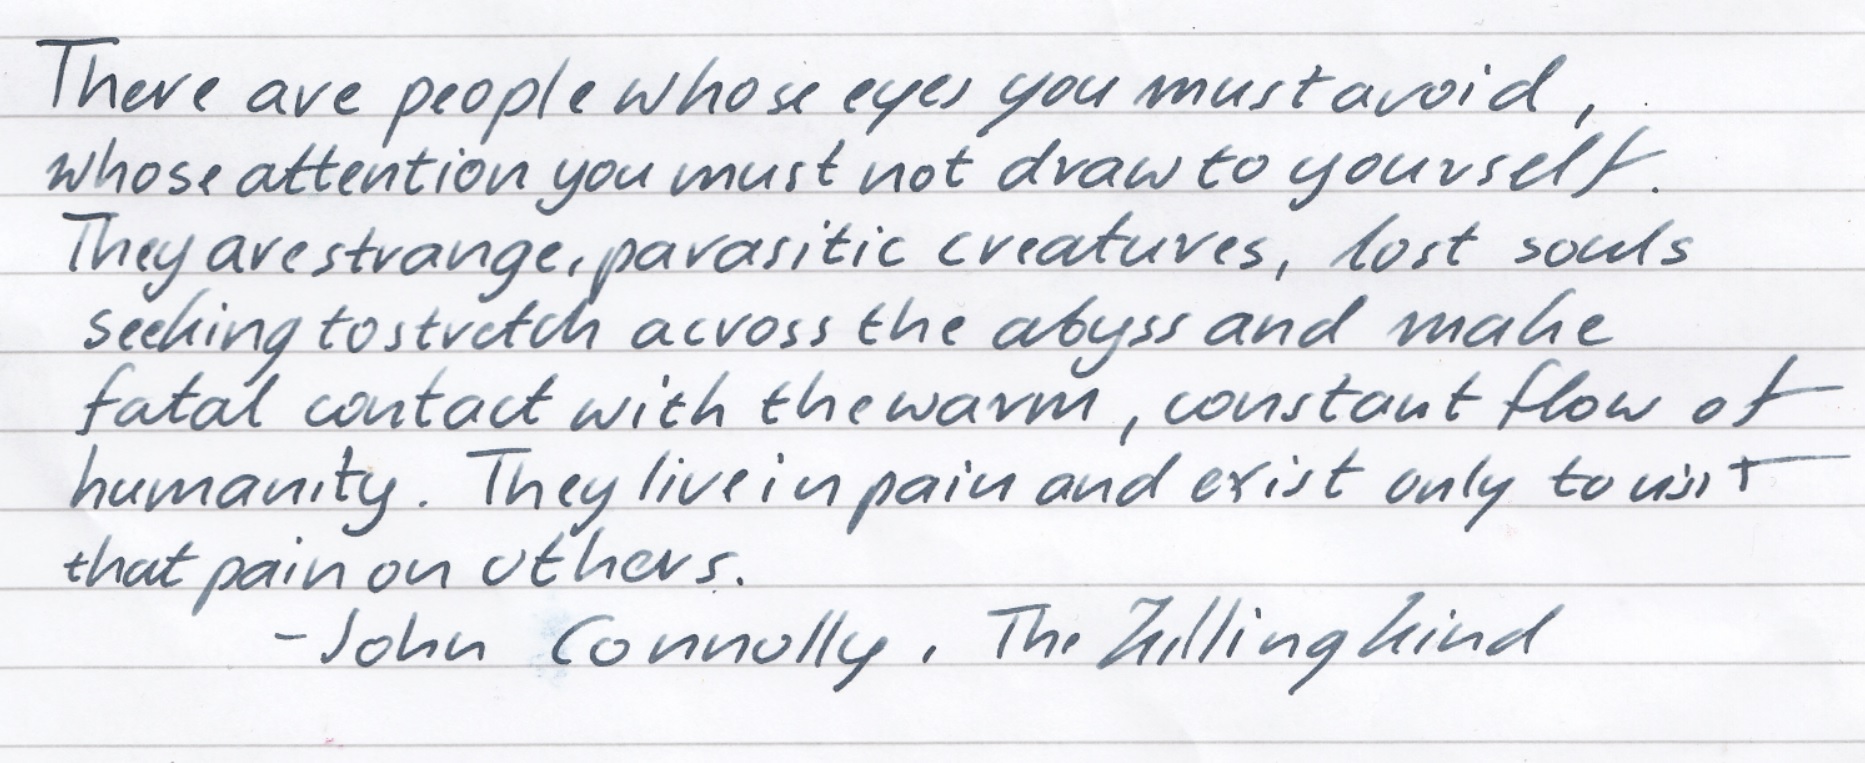 There are people whose eyes you must avoid,
whose attention you must not draw to yourself.
They are strange, parasitic creatures, lost souls
seeking to stretch across the abyss and make
fatal contact with the warm, constant flow of
humanity. They live in pain and exist only to visit
that pain on others.
- John Connolly, The Killing Kind